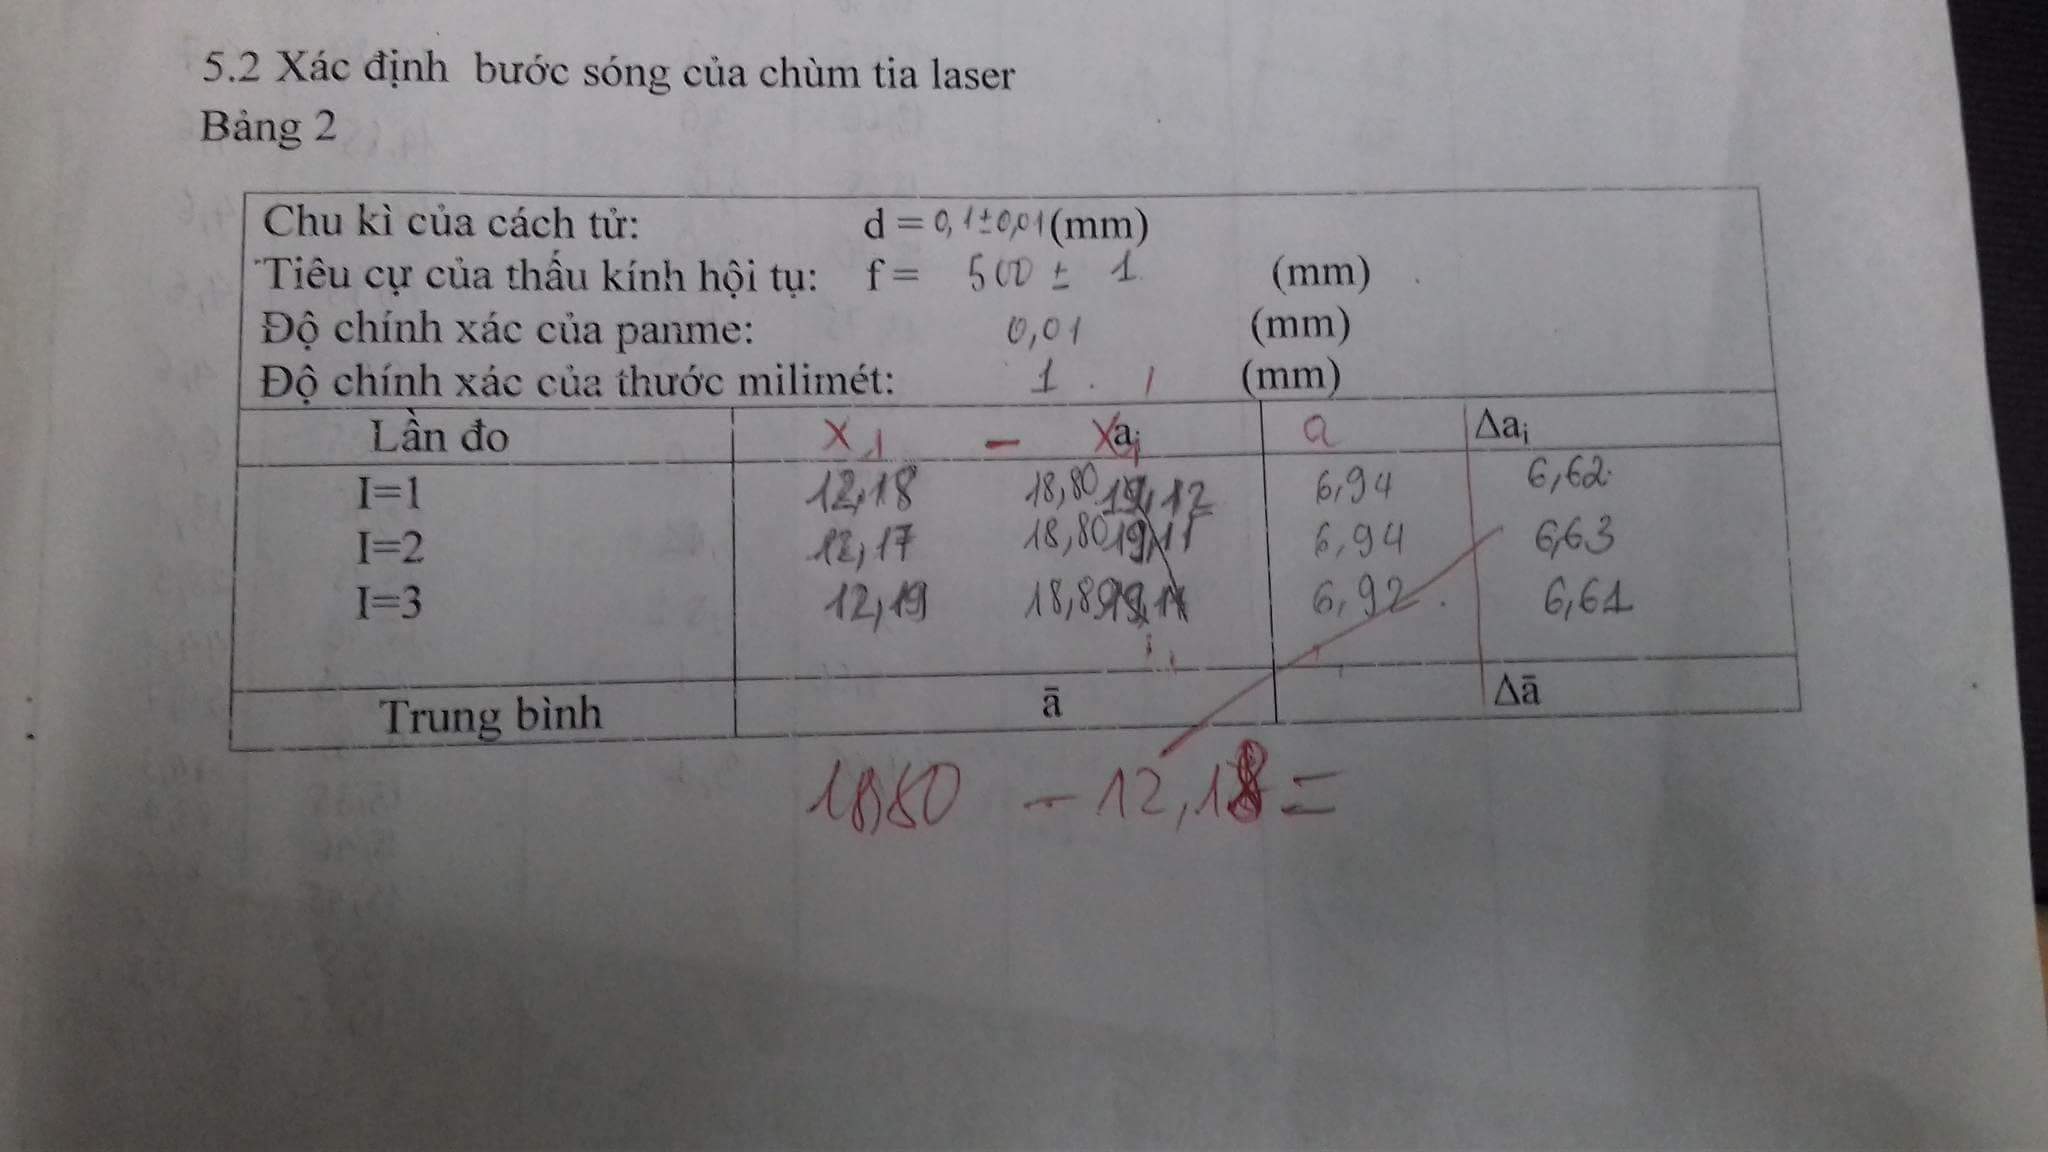 5.2 Xác định bước sóng của chùm tia laser
Bảng 2
Chu kì của cách tử: d = 0,1±0,01 (mm)
Tiêu cự của thấu kính hội tụ: f = 500 ± 1 (mm)
Độ chính xác của panme: 0,01 (mm)
Độ chính xác của thước milimét: 1 (mm)
Lần đo x1 - xaᵢ a Δaᵢ
I=1 12,18 18,80 19,12 6,94 6,62
I=2 12,17 18,80 19,11 6,94 6,63
I=3 12,19 6,92 6,61
Trung bình ā Δā
18,80 - 12,18 =